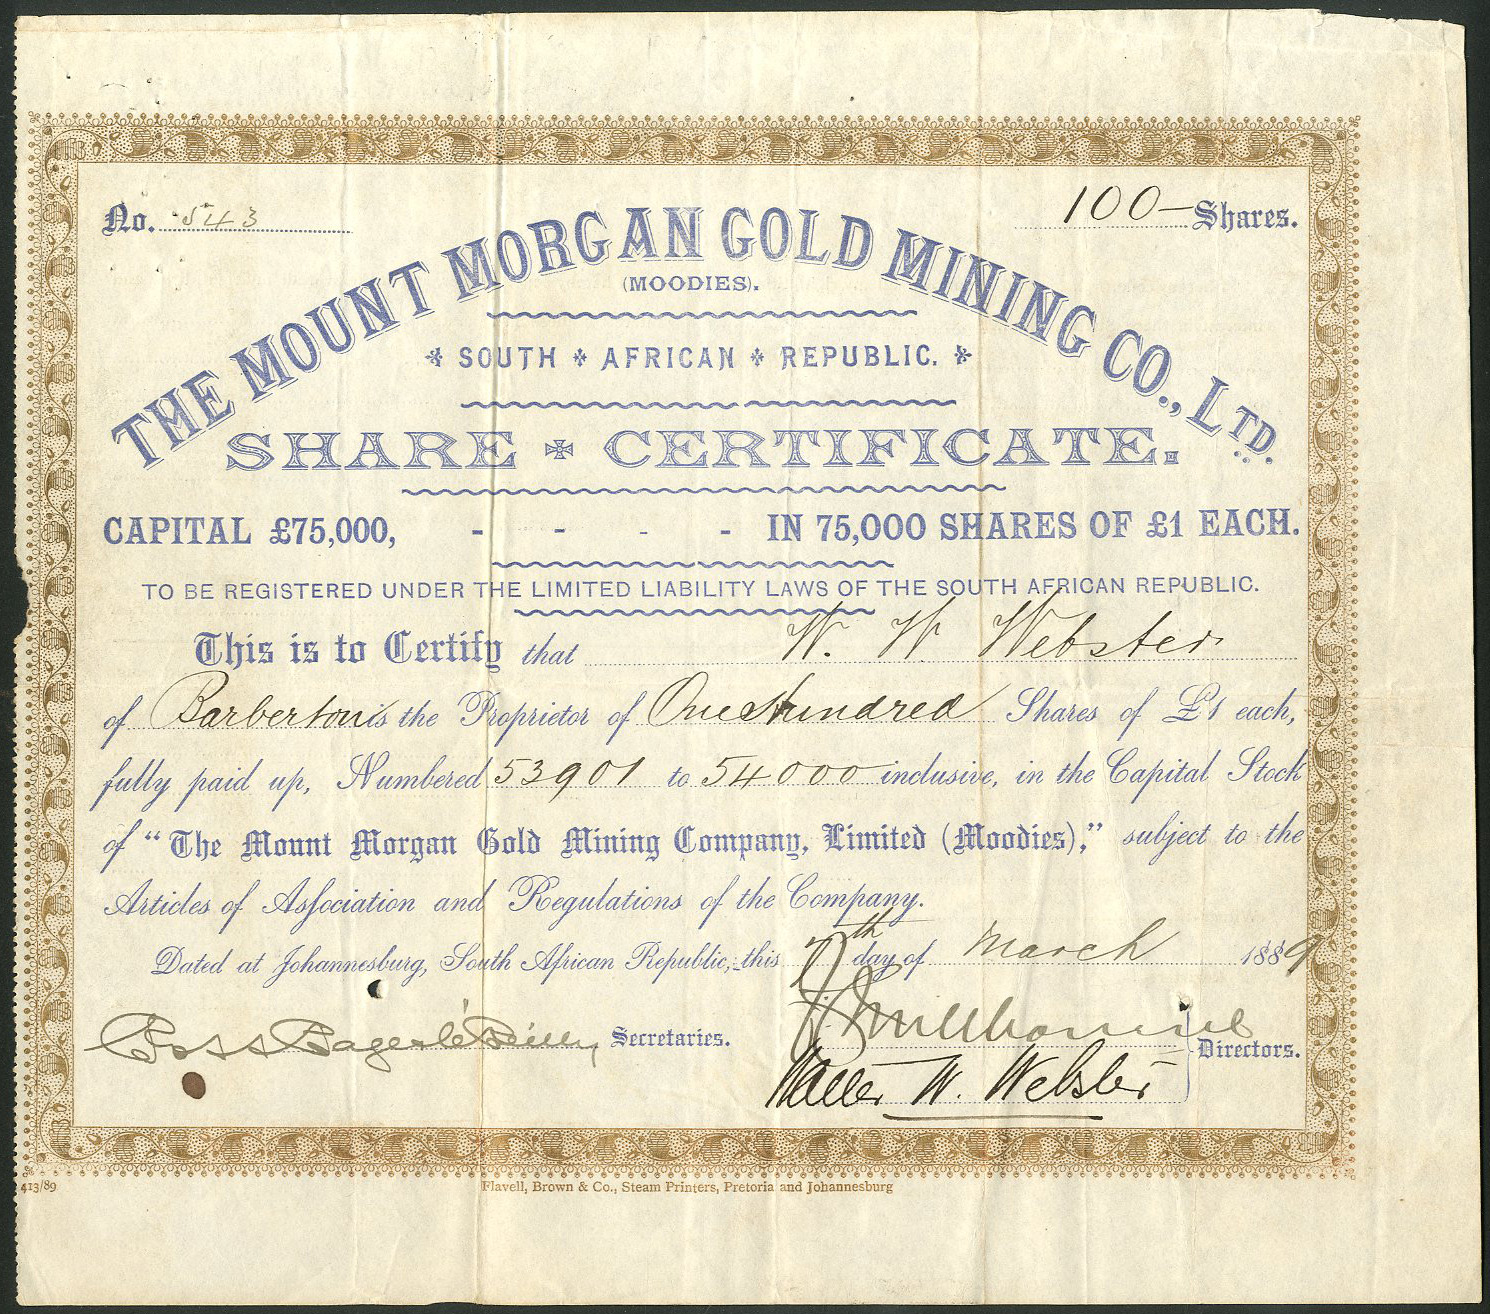 No. 543
100 - Shares.
THE MOUNT MORGAN GOLD MINING CO., LTD.
(MOODIES).
SOUTH AFRICAN REPUBLIC.
SHARE CERTIFICATE.
CAPITAL £75,000, - - - - IN 75,000 SHARES OF £1 EACH.
TO BE REGISTERED UNDER THE LIMITED LIABILITY LAWS OF THE SOUTH AFRICAN REPUBLIC.
This is to Certify that W. W. Webster
of Barberton is the Proprietor of One Hundred Shares of £1 each,
fully paid up, Numbered 53901 to 54000 inclusive, in the Capital Stock
of "The Mount Morgan Gold Mining Company, Limited (Moodies)," subject to the
Articles of Association and Regulations of the Company.
Dated at Johannesburg, South African Republic, this 7th day of March 1889
Secretaries.
Directors.
Walter W. Webster
413/89
Flavell, Brown & Co., Steam Printers, Pretoria and Johannesburg